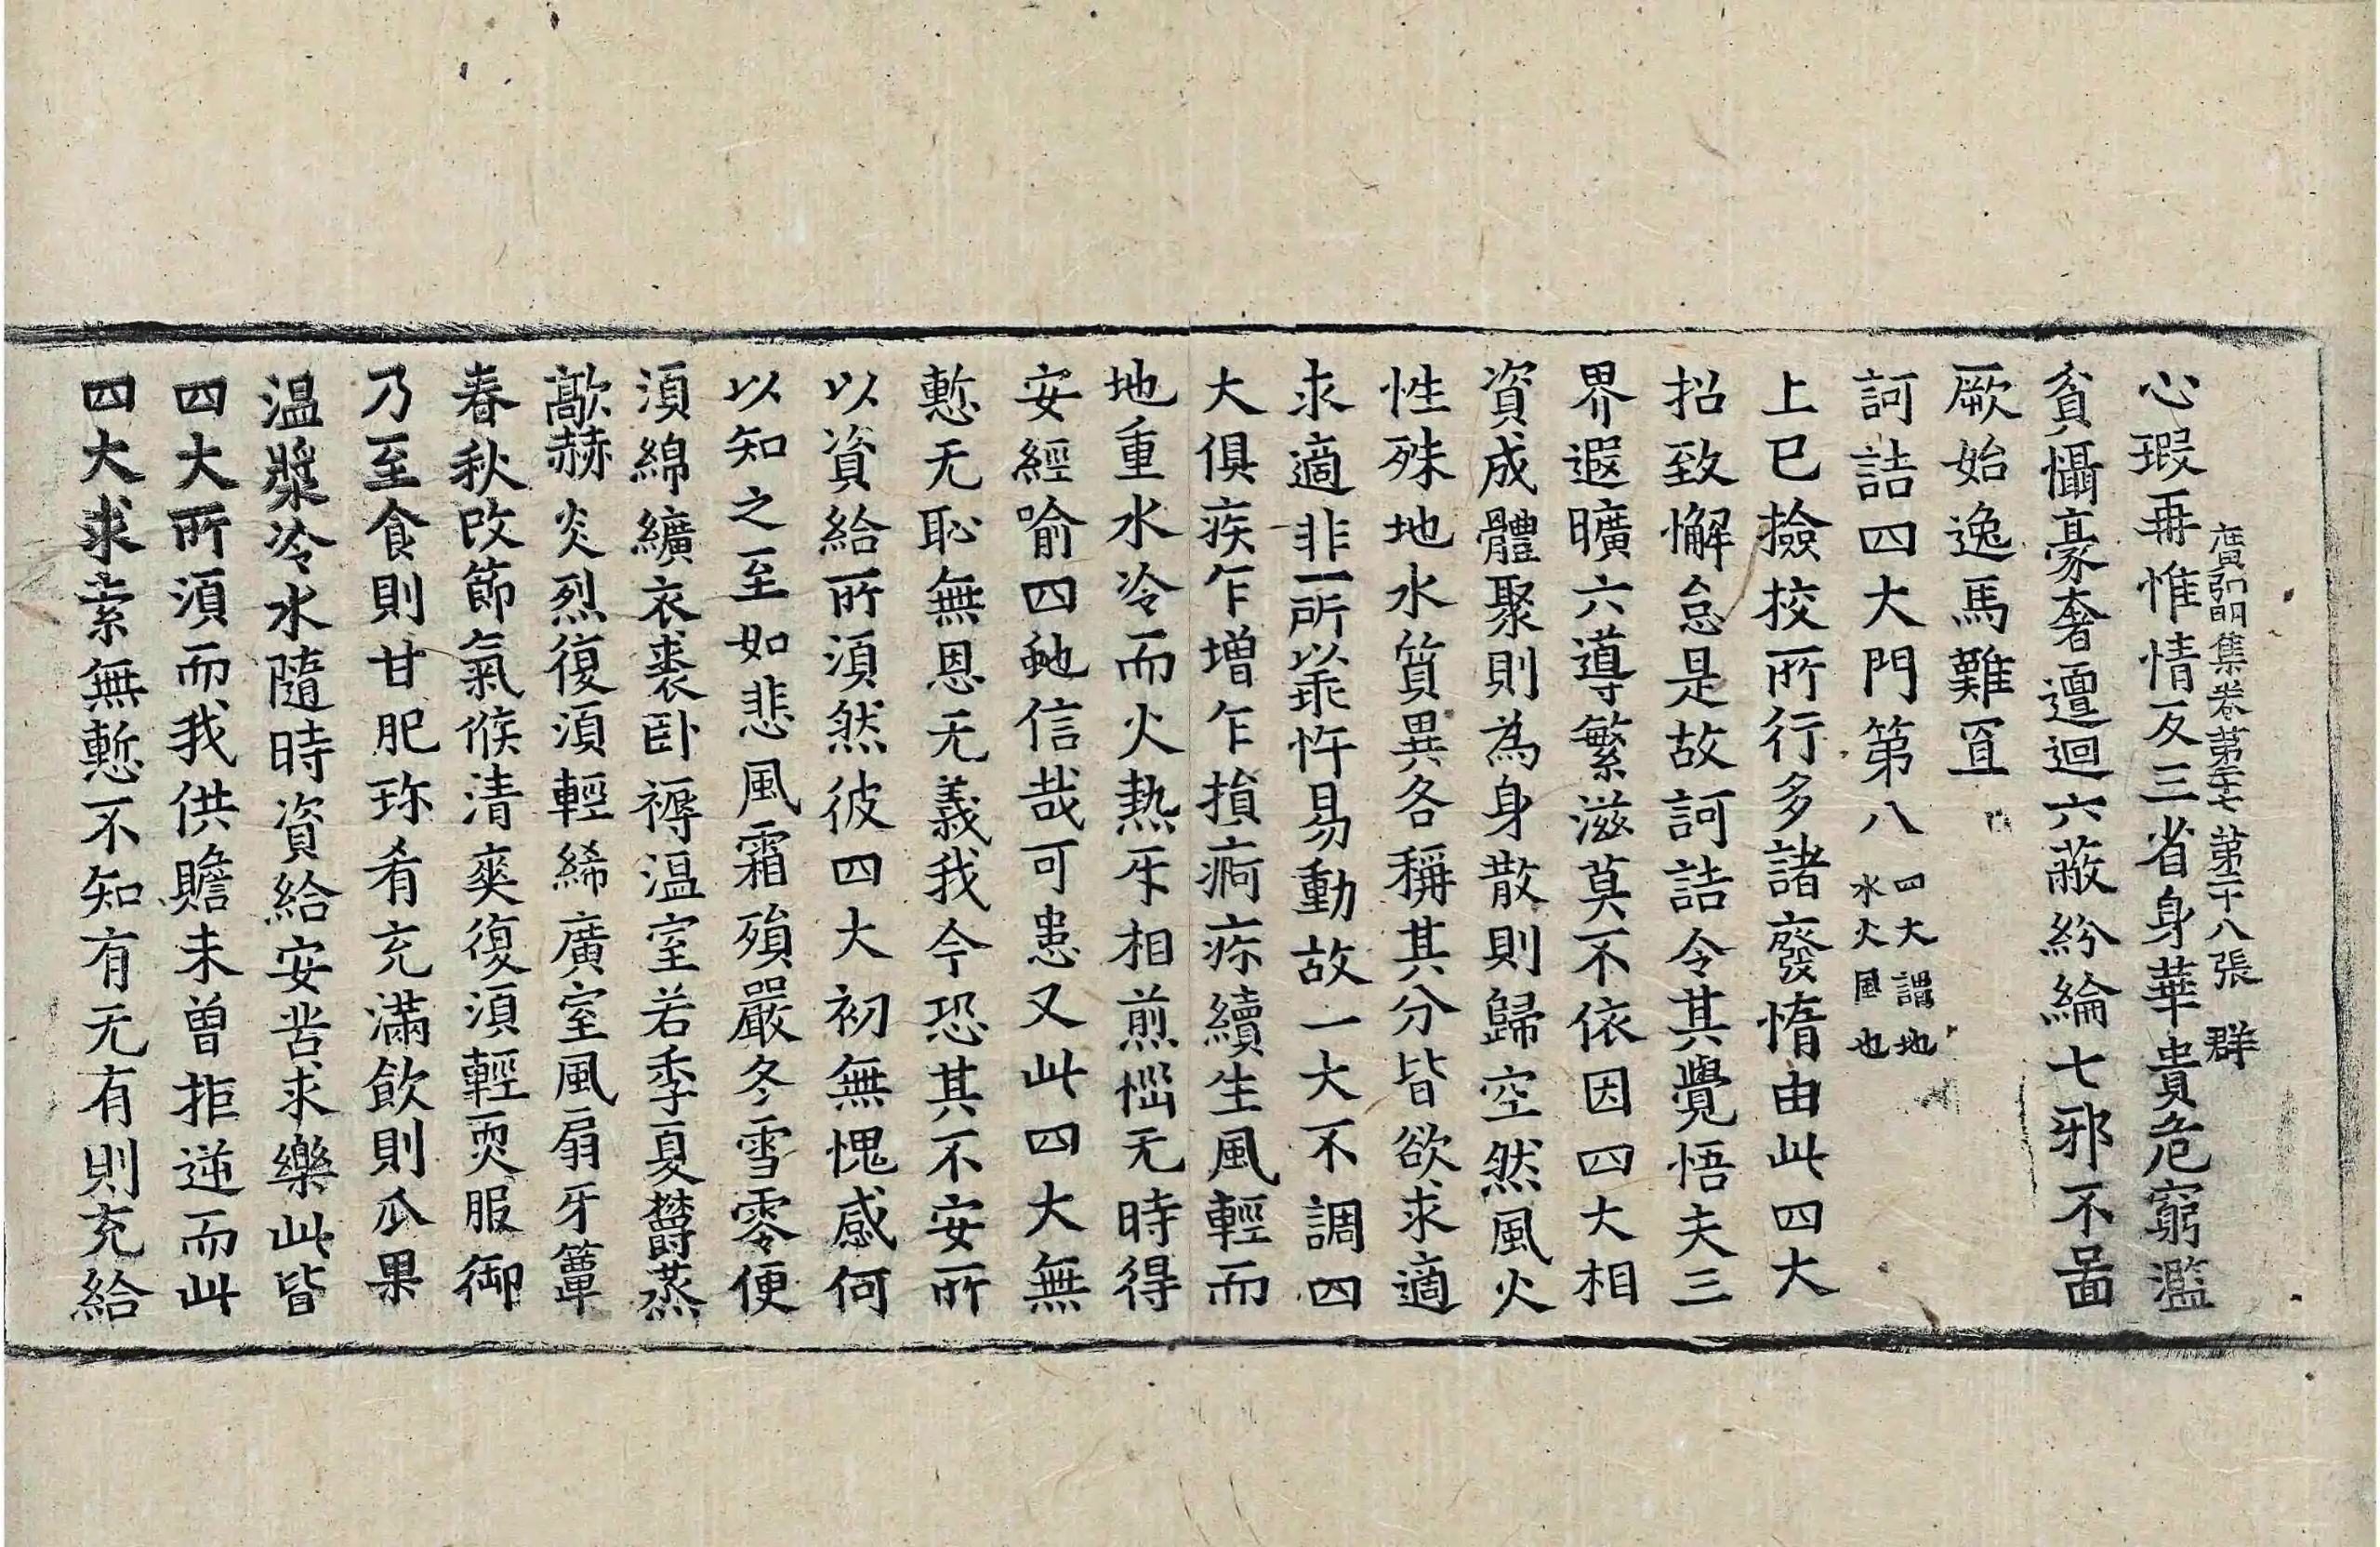 廣弘明集卷第二十七 第二十八張 群
心瑕再惟情反三省身華貴危窮濫
貧懾豪奢邅迴六蔽紛綸七邪不啚
厥始逸馬難𦊆
訶詰四大門第八 四大謂地水火風也
上已撿校所行多諸廢惰由此四大
招致懈怠是故訶詰令其覺悟夫三
界遐曠六導繁滋莫不依因四大相
資成體聚則為身散則歸空然風火
性殊地水質異各稱其分皆欲求適
求適非一所以乖忤易動故一大不調四
大俱疾乍增乍損痾疹續生風輕而
地重水冷而火熱牙相煎惱无時得
安經喻四虵信哉可患又此四大無
慙无恥無恩无義我今恐其不安所
以資給所須然彼四大初無愧感何
以知之至如悲風霜殞嚴冬雪零便
須綿纊衣裘卧褥温室若季夏欝蒸
歊赫炎烈復須輕絺廣室風扇牙簟
春秋改節氣候清爽復須輕耎服御
乃至食則甘肥珎肴充滿飲則瓜果
温漿冷水隨時資給安苦求樂此皆
四大所須而我供贍未曾拒逆而此
四大求索無慙不知有无有則充給